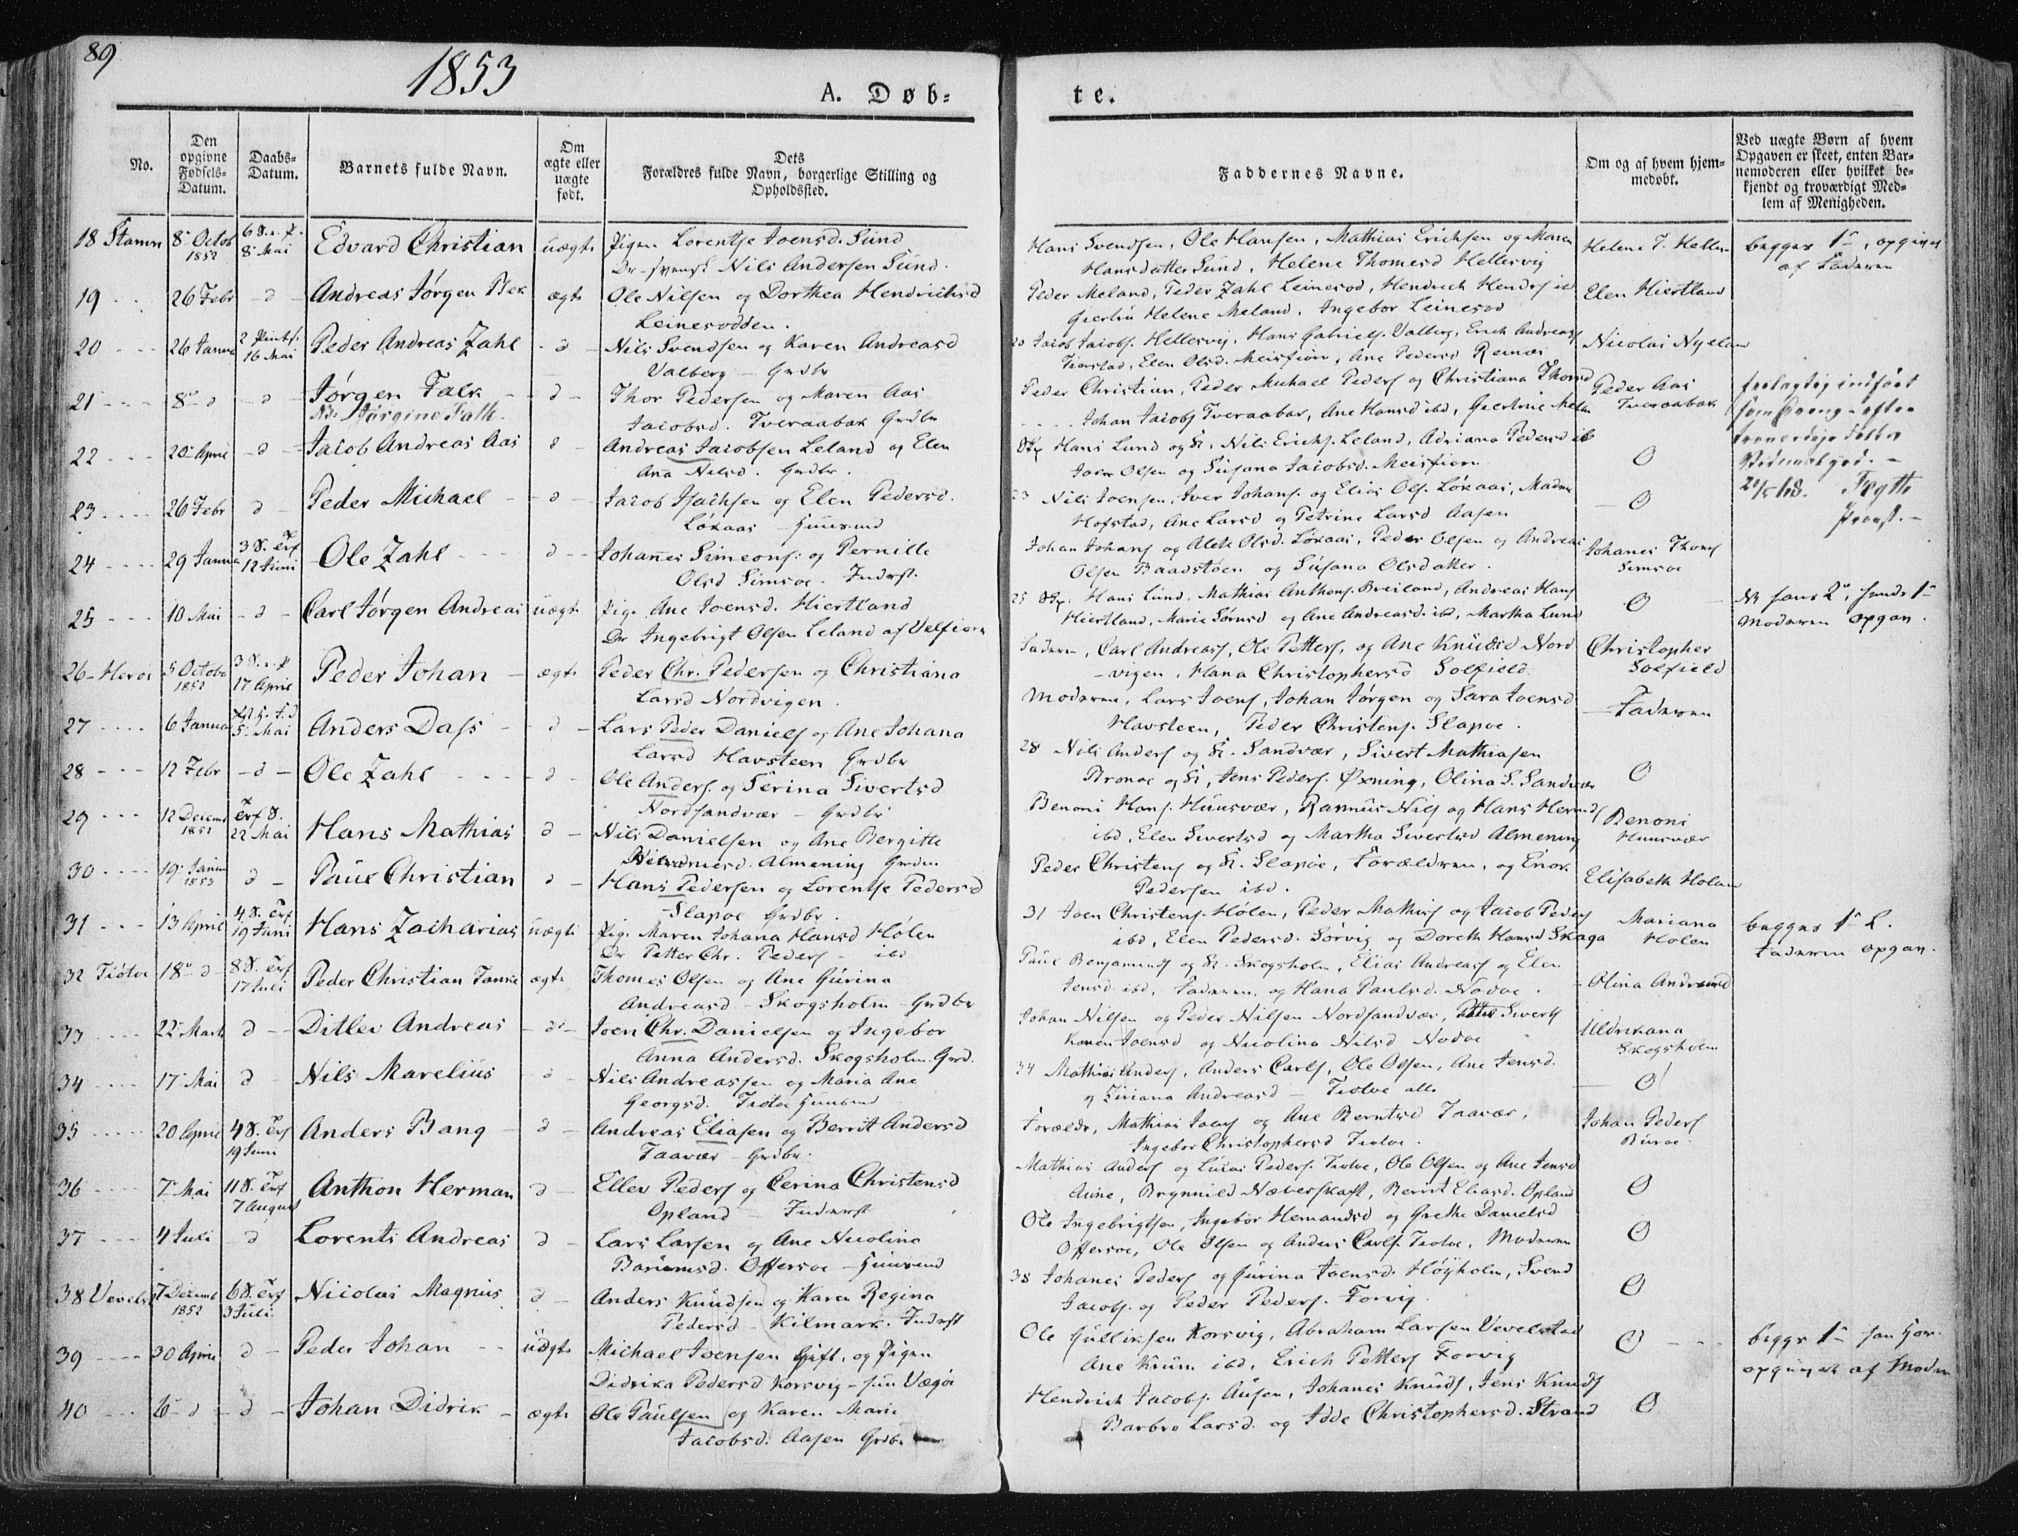 89
1853
A. Døb-
te.
No.
Den opgivne Fødsels-Datum.
Daabs-Datum.
Barnets fulde Navn.
Om ægte eller uægte født.
Dets Forældres fulde Navn, borgerlige Stilling og Opholdssted.
Faddernes Navne.
Om og af hvem hjem-medøbt.
Ved uægte Børn af hvem Opgaven er skeet, enten Bar-nemoderen eller hvilket be-kjendt og troværdigt Med-lem af Menigheden.
18 Stamn 8 Octob 1852 8 Mai Edvard Christian uægte Pigen Lorentse Joensd. Sund
Nils Andersen Sund.
Hans Svendsen, Ole Hansen, Mathias Erichsen og Maren
Hansdatter Sund, Helene Thomesd Hellesvig
Helene T. Helles
begges 1ste, opgivet
af Faderen
19 26 Febr d Andreas Jørgen Bek ægte Ole Nilsen og Dorthea Hendrichsd
Leinesodden.
Peder Meland, Peder Zahl Leinesod, Hendrich Hends ibd
Helene Meland, Ingebor Leinesod
Elen Hiertland
20 26 Janua 2 Pintsd. 16 Mai Peder Andreas Zahl d Nils Svendsen og Karen Andreasd
Valberg Grdbr
20 Jacob Jacobs. Hellesvig, Hans Gabriels. Valberg, Erich Andreass
Elen Olsd. Meisfiord, Ane Pedersd Remæs
Nicolai
21 8 d d Jørgen Falk d Thor Pedersen og Maren Aas
NB. Jørgine Falk
Jacobsd. Tveraabak Grdbr
Peder Christian, Peder Michael Peders og Christiana Thorsd
Johan Jacobs Tveraabak, Ane Hansd ibd,
Peder Aas
Tveraabak
feilagtig indført
som Dreng
22 20 April d Jacob Andreas Aas d Andreas Jacobsen Leland og Elen
Ana Nilsd. Grdbr.
Hans Lund og K. Nils Erichs. Leland, Adriana Pedersd ibd
Olsen og Susana Jacobsd. Meisfiord
O
23 26 Febr d Peder Michael d Jacob Isachsen og Elen Pedersd.
Løkaas Huusmd
23 Nils Joensen, Iver Johans. og Elias Ols. Løkaas,
Hofstad, Ane Larsd og Petrine Larsd Aasen
O
Provst.
24 29 Janua 3 S. e. Trf 12 Juni Ole Zahl d Johannes Simeons. og Pernille
Olsd Simsøe. Inderst.
Johan Johans og Olsd. Løkaas, Peder Olsen og Andreas
Olsen Baadstøen og Susana Olsdatter.
Johanes Thoms
Simsøe
25 10 Mai d Carl Jørgen Andreas uægte Pig. Ane Joensd. Hiertland
Dr Ingebrigt Olsen Leland af Velfiorn
25 Hans Lund, Mathias Anthons. Breiland, Andreas Hans
Hiertland, Marie Sørnsd og Ane Andreasd. ibd, Martha Lund
O
hans 2, hendes 1
Moderen opgav.
26 Herøe 5 Octobr 1852 17 April Peder Johan ægte Peder Chr. Pedersen og Christiana
Larsd Nordvigen.
Faderen, Carl Andreass, Ole Petters, og Ane Knudsd Nord
-vigen, Hana Christophersd Solfield.
Christopher
Solfield
27 6 Janua 5 Mai Anders Dass d Lars Peder Daniels og Ane Johana
Larsd Havsteen Grdbr
Moderen, Lars Joens, Johan Jørgen og Sara Joensd
Havsteen, Peder Christens. Slapøe.
Faderen
28 12 Febr d Ole Zahl d Ole Anders. og Serina Sivertsd
Nordsandvær Grdbr
28 Nils Anders og K. Sandvær, Sivert Mathiasen
Bronøe og K, Jens Peders. Øxning, Olina S. Sandvær
O
29 12 Decemb 1852 Trf S. 22 Mai Hans Mathias d Nils Danielsen og Ane Bergitte
Almening Grdm
Benoni Hans. Huusvær, Rasmus Niels og Hans Hermd
ibd, Elen Sivertsd og Martha Sivertsd Almening
Benoni
Huusvær
30 19 Janua 1853 d Paul Christian d Hans Pedersen og Lorentse Pedersd
Slapøe Grdbr.
Peder Christens og K. Slapøe, Forældrene, og Enok
Pedersen ibd.
Elisabeth Holan
31 13 April 4 S. e. Trf 19 Juni Hans Zacharias uægte Pig. Maren Johana Hansd Holen
Dr Petter Chr. Peders ibd
31 Joen Christens. Holen, Peder Mathis og Jacob Peders
ibd, Elen Pedersd. Sørvig og Doreth Hansd Skaga
Mariana
Holen
begges 1 L.
Faderen opgav.
32 Tiøtøe 18 d 8 S. e. Trf 17 Juli Peder Christian ægte Thomes Olsen og Ane Gurina
Andreasd Skogsholm Grdbr
Paul Benjamins og K. Skogsholm, Elias Andreas og Elen
Jensd ibd, Faderen, og Hana Paulsd. Nodøe.
Olina Andreasd
33 22 Marts d Ditlev Andreas d Joen Chr. Danielsen og Ingebor
Anna Andersd. Skogsholm. Grd.
Johan Nilsen og Peder Nilsen Nordsandvær, Siverts
Karen Joensd og Nicolina Nilsd Nodøe
Uldrikana
Skogsholm
34 17 Mai d Nils Marelius d Nils Andreassen og Maria Ane
Georgsd. Tiøtøe Huusmd
34 Mathias Anders, Anders Carls, Ole Olsen, Ane Jensd.
og Ziriana Andreasd Tiøtøe alle
O
35 20 April 4 S. e. Trf 19 Juni Anders Bang d Andreas Eliasen og Berrit Andersd
Taavær Grdbr.
Forældr, Mathias Joens og Ane Berntsd Taavær,
Ingebor Christophersd Tiøtøe.
Johan Peders
Burøe.
36 7 Mai 11 S. e. Trf 7 August Anthon Herman d Ellev Peders og Cerina Christensd
Opland Inderst
Mathias Anders og Lucas Peders. Tiøtøe, Ole Olsen og Ane Jensd
Aune, Brynnild Næverskaft, Berrit Eliasd. Opland
O
37 4 Juli d Lorents Andreas d Lars Larsen og Ane Nicolina
Offersøe Huusmd
Ole Ingebrigtsen, Ingebor Hemandsd og Grethe Danielsd
Offersøe, Ole Olsen og Anders Carls. Tiøtøe, Moderen
O
38 Vevelst 7 Decemb 1852 6 S. e. Trf 3 Juli Nicolai Magnus d Anders Knudsen og Karen Regina
Pedersd Kilmark. Inderst
38 Johanes Peders og Gurina Joensd. Høyholm, Svend
Jacobs. og Peder Peders. Forvig.
O
39 30 April d Peder Johan uægte Michael Joensen Gift, og Pigen
Didrika Pedersd Korsvig
Ole Gulliksen Korsvig, Abraham Larsen Vevelstad
Ane Krum ibd, Erich Petters Forvig
O
begges 1
opgivet af Modern
40 6 d d Johan Didrik ægte Ole Paulsen og Karen Marie
Jacobsd. Aasen Grdbr
Hendrich Jacobs. Ausen, Johanes Knuds, Jens Knuds
Barbro Larsd. og Idde Christophersd. Strand
O